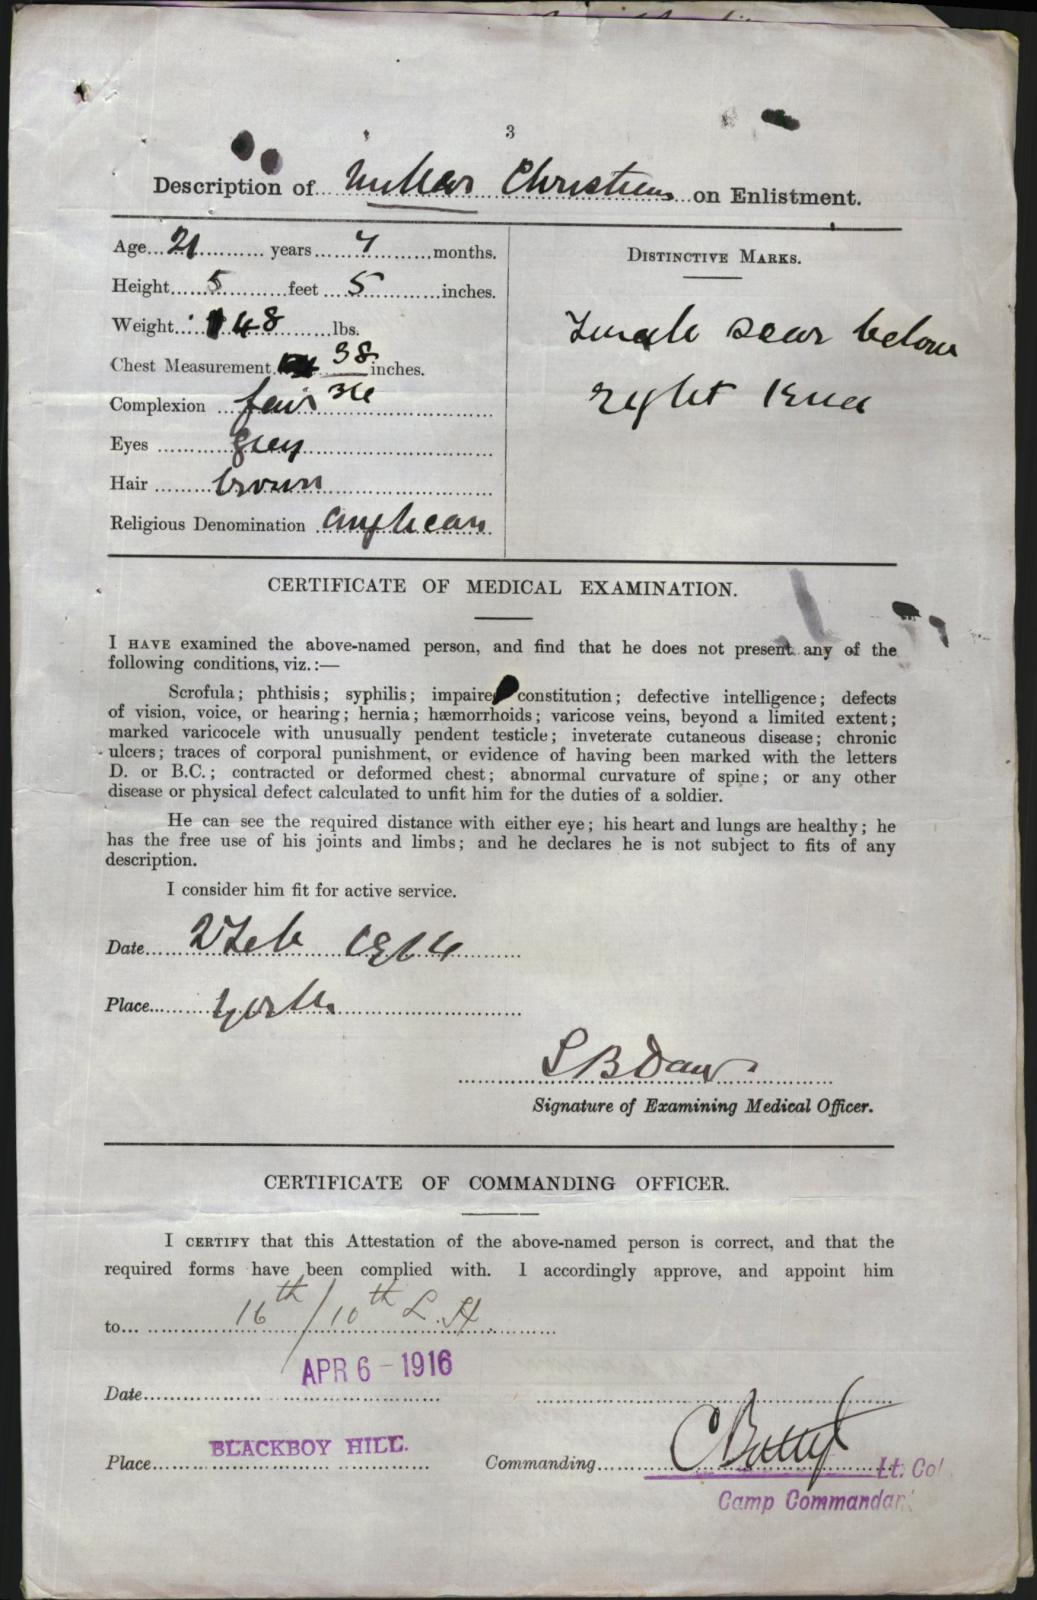 3
Description of Christian on Enlistment.
Age 21 years 7 months.
Height 5 feet 5 inches.
Weight 148 lbs.
Chest Measurement 38 inches.
36
Complexion fair
Eyes grey
Hair brown
Religious Denomination Anglican
DISTINCTIVE MARKS.
Small scar below
right knee
CERTIFICATE OF MEDICAL EXAMINATION.
I HAVE examined the above-named person, and find that he does not present any of the
following conditions, viz.:—
Scrofula; phthisis; syphilis; impaired constitution; defective intelligence; defects
of vision, voice, or hearing; hernia; hæmorrhoids; varicose veins, beyond a limited extent;
marked varicocele with unusually pendent testicle; inveterate cutaneous disease; chronic
ulcers; traces of corporal punishment, or evidence of having been marked with the letters
D. or B.C.; contracted or deformed chest; abnormal curvature of spine; or any other
disease or physical defect calculated to unfit him for the duties of a soldier.
He can see the required distance with either eye; his heart and lungs are healthy; he
has the free use of his joints and limbs; and he declares he is not subject to fits of any
description.
I consider him fit for active service.
Date 2 Feb 1916
Place York
Signature of Examining Medical Officer.
CERTIFICATE OF COMMANDING OFFICER.
I CERTIFY that this Attestation of the above-named person is correct, and that the
required forms have been complied with. I accordingly approve, and appoint him
to 16th/10th L.H.
APR 6 - 1916
Date
BLACKBOY HILL.
Place
Commanding Lt. Col
Camp Commandant